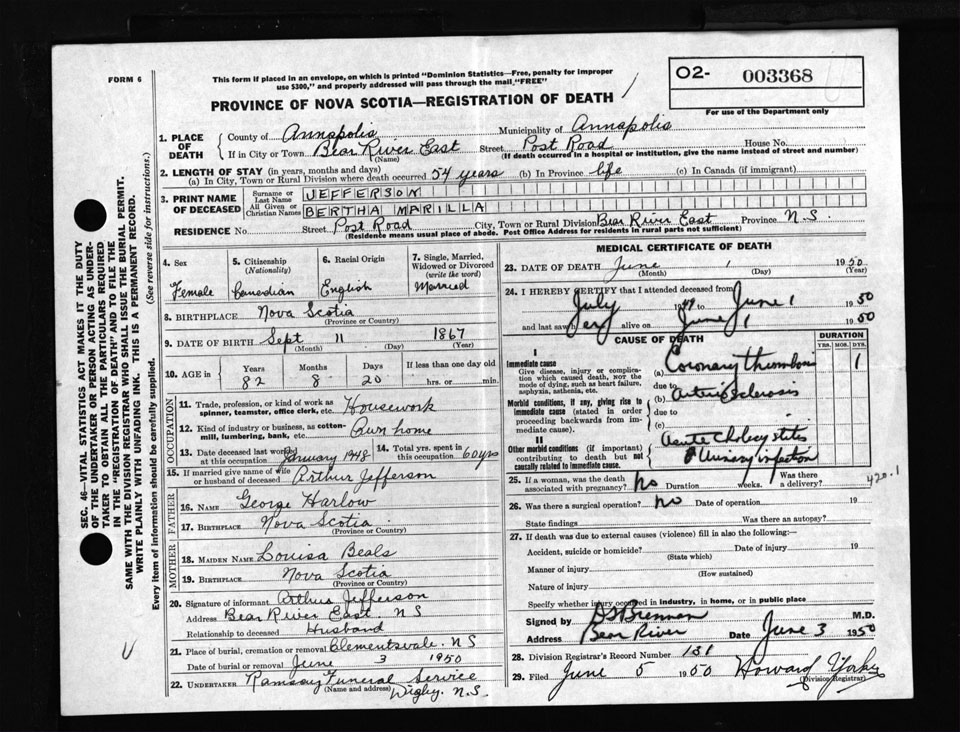 FORM 6
This form if placed in an envelope, on which is printed "Dominion Statistics—Free, penalty for improper
use $300," and properly addressed will pass through the mail "FREE"
PROVINCE OF NOVA SCOTIA—REGISTRATION OF DEATH
O2- 003368
For use of the Department only
SEC. 46—VITAL STATISTICS ACT MAKES IT THE DUTY
OF THE UNDERTAKER OR PERSON ACTING AS UNDER-
TAKER TO OBTAIN ALL THE PARTICULARS REQUIRED
IN THE "REGISTRATION OF DEATH" AND TO FILE THE
SAME WITH THE DIVISION REGISTRAR WHO SHALL ISSUE THE BURIAL PERMIT.
WRITE PLAINLY WITH UNFADING INK. THIS IS A PERMANENT RECORD.
Every item of information should be carefully supplied. (See reverse side for instructions.)
1. PLACE OF DEATH County of Annapolis Municipality of Annapolis
If in City or Town Bear River East Street Post Road House No.
(Name) (If death occurred in a hospital or institution, give the name instead of street and number)
2. LENGTH OF STAY (in years, months and days)
(a) In City, Town or Rural Division where death occurred 54 years (b) In Province life (c) In Canada (if immigrant)
3. PRINT NAME OF DECEASED Surname or Last Name JEFFERSON
All Given or Christian Names BERTHA MARILLA
RESIDENCE No. Street Post Road City, Town or Rural Division Bear River East Province N.S.
(Residence means usual place of abode. Post Office Address for residents in rural parts not sufficient)
4. Sex 5. Citizenship (Nationality) 6. Racial Origin 7. Single, Married, Widowed or Divorced (write the word)
Female Canadian English Married
8. BIRTHPLACE Nova Scotia
(Province or Country)
9. DATE OF BIRTH Sept 11 1867
(Month) (Day) (Year)
10. AGE in Years Months Days If less than one day old
82 8 20 hrs. or min.
OCCUPATION
11. Trade, profession, or kind of work as
spinner, teamster, office clerk, etc. Housework
12. Kind of industry or business, as cotton-
mill, lumbering, bank, etc. Own home
13. Date deceased last worked at this occupation January 1948 14. Total yrs. spent in this occupation 60 yrs
15. If married give name of wife
or husband of deceased Arthur Jefferson
FATHER
16. NAME George Harlow
17. BIRTHPLACE Nova Scotia
(Province or Country)
MOTHER
18. MAIDEN NAME Louisa Beals
19. BIRTHPLACE Nova Scotia
(Province or Country)
20. Signature of informant Arthur Jefferson
Address Bear River East. N S
Relationship to deceased Husband
21. Place of burial, cremation or removal Clementsvale, N S
Date of burial or removal June 3 1950
22. UNDERTAKER Ramsay Funeral Service
(Name and address) Digby, N.S.
MEDICAL CERTIFICATE OF DEATH
23. DATE OF DEATH June 1 1950
(Month) (Day) (Year)
24. I HEREBY CERTIFY that I attended deceased from
July 1949 to June 1 1950
and last saw her alive on June 1 1950
CAUSE OF DEATH DURATION
YRS. MOS. DYS.
I
Immediate cause
Give disease, injury or complica-
tion which caused death, not the
mode of dying, such as heart failure,
asphyxia, asthenia, etc.
(a) Coronary thrombosis 1
due to
Morbid conditions, if any, giving rise to
immediate cause (stated in order
proceeding backwards from im-
mediate cause).
(b) Arteriosclerosis
due to
(c)
II
Other morbid conditions (if important)
contributing to death but not
causally related to immediate cause.
Acute Cholecystitis
Urinary infection
25. If a woman, was the death
associated with pregnancy? No Duration weeks. Was there a delivery? 420.1
26. Was there a surgical operation? No Date of operation 19
State findings Was there an autopsy?
27. If death was due to external causes (violence) fill in also the following:—
Accident, suicide or homicide? Date of injury 19
(State which)
Manner of injury
(How sustained)
Nature of injury
Specify whether injury occurred in industry, in home, or in public place
Signed by Brennan M.D.
Address Bear River Date June 3 1950
28. Division Registrar's Record Number 131
29. Filed June 5 1950 Howard Yorke
(Division Registrar)